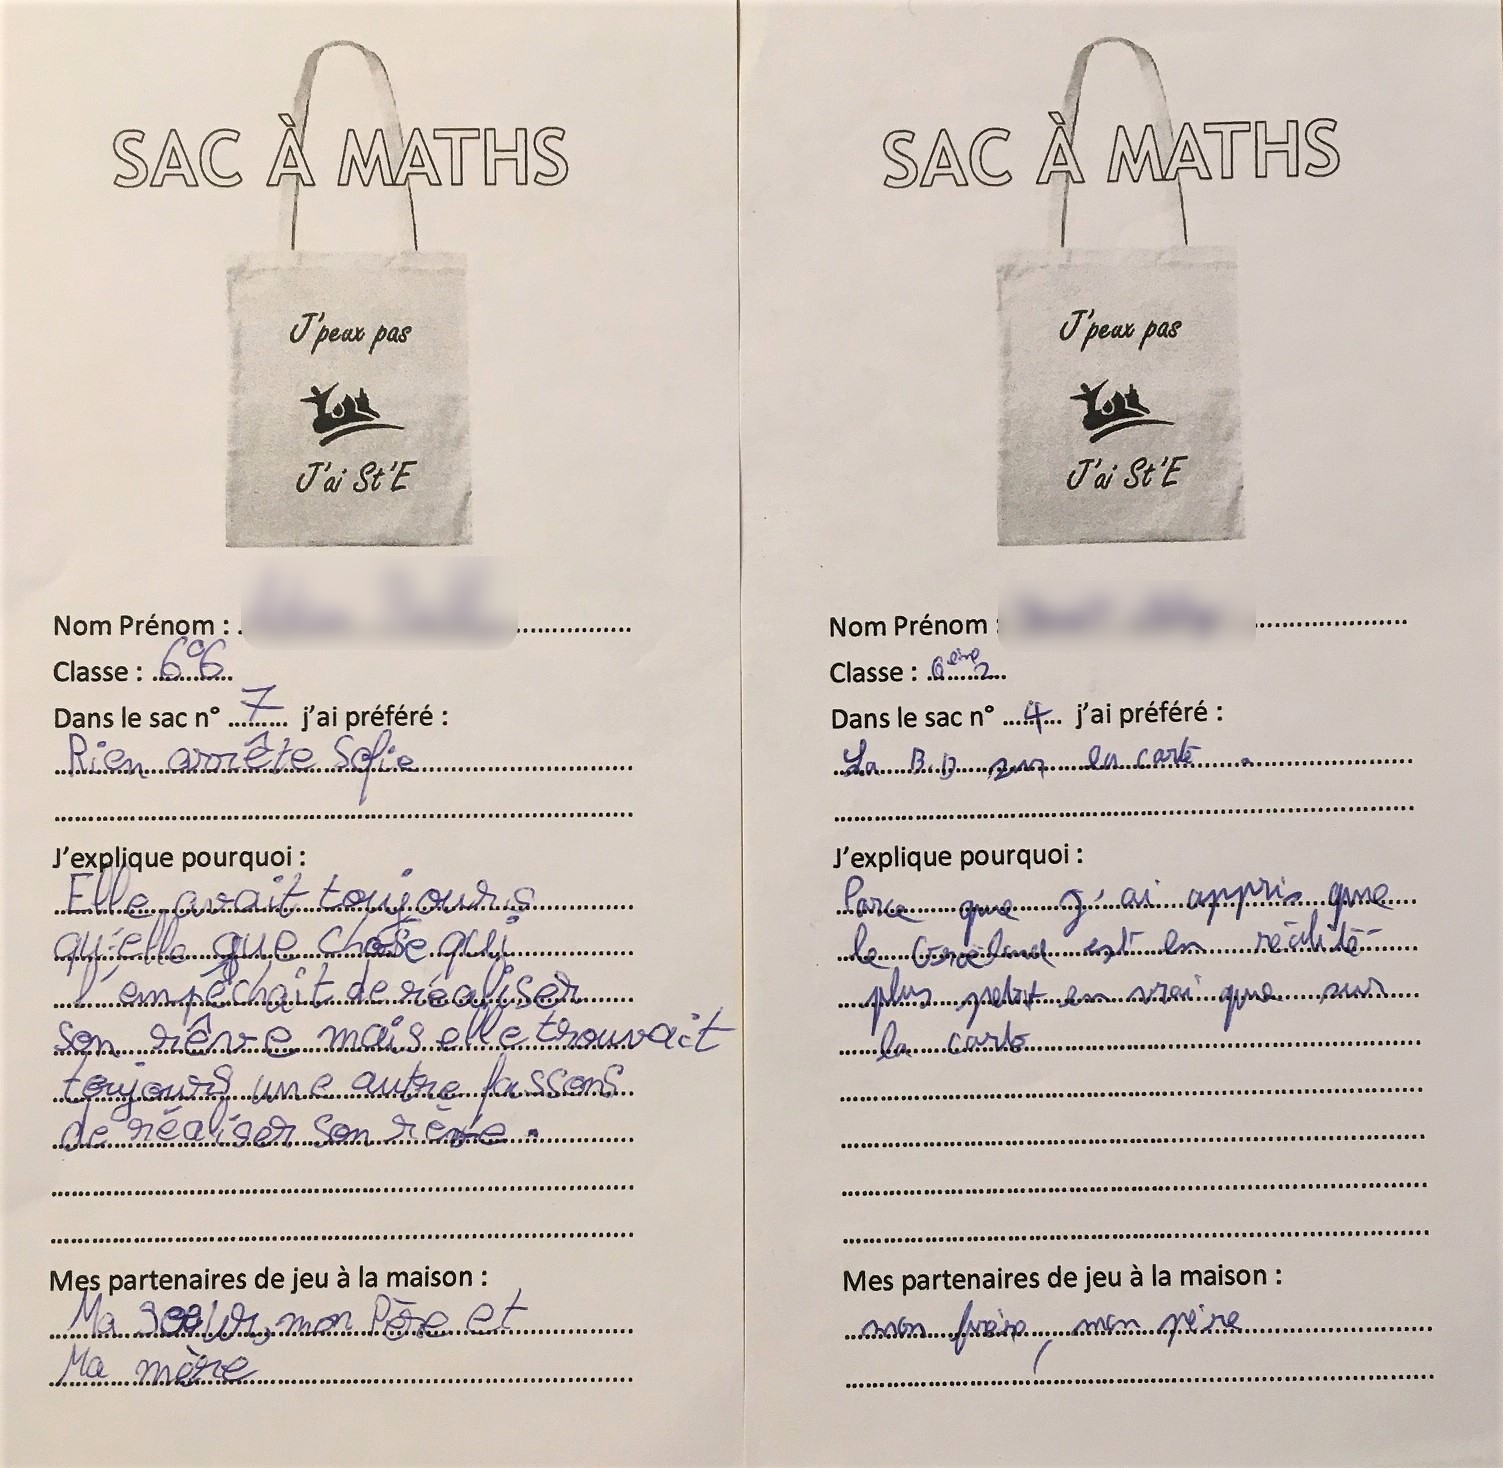 SAC À MATHS
J'peux pas
J'ai St'E
Nom Prénom :
Classe : 6°6
Dans le sac n° 7 j'ai préféré :
Rien arrête Sofie
J'explique pourquoi :
Elle avait toujours
qu'elle que chose qui
l'empêchait de réaliser
son rêve mais elle trouvait
toujours une autre fassons
de réaliser son rêve.
Mes partenaires de jeu à la maison :
Ma soeur, mon Père et
Ma mère
SAC À MATHS
J'peux pas
J'ai St'E
Nom Prénom :
Classe : 6eme2
Dans le sac n° 4 j'ai préféré :
La B.D sur la carte.
J'explique pourquoi :
Parce que j'ai appris que
le est en réalité
plus petit en vrai que sur
la carte
Mes partenaires de jeu à la maison :
mon frère, mon père